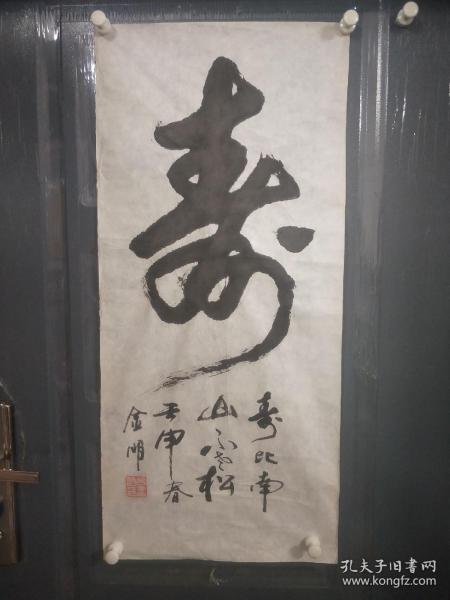 寿
寿比南
山不老松
壬申春
金
孔夫子旧书网
www.kongfz.com